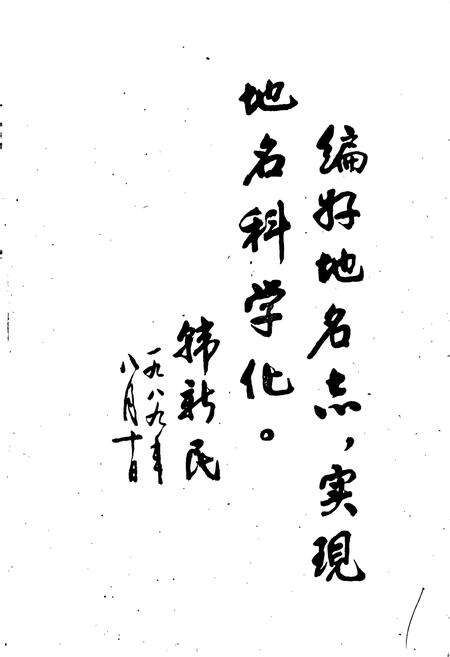 编好地名志，实现
地名科学化。
韩新民
一九八九年
八月十日